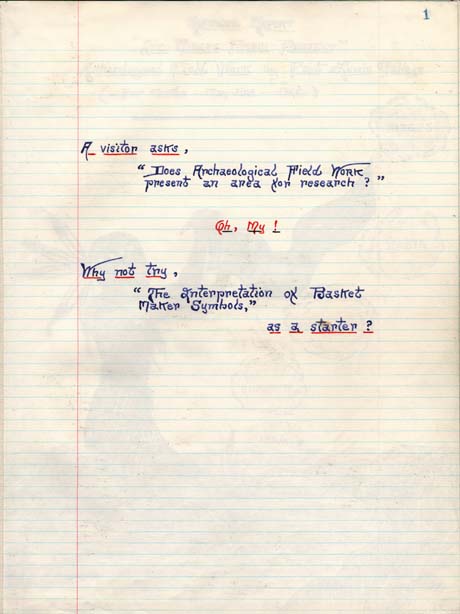 1
A visitor asks,
"Does Archaeological Field Work
present an area for research?"
Oh, My!
Why not try,
"The Interpretation of Basket
Maker Symbols,"
as a starter?